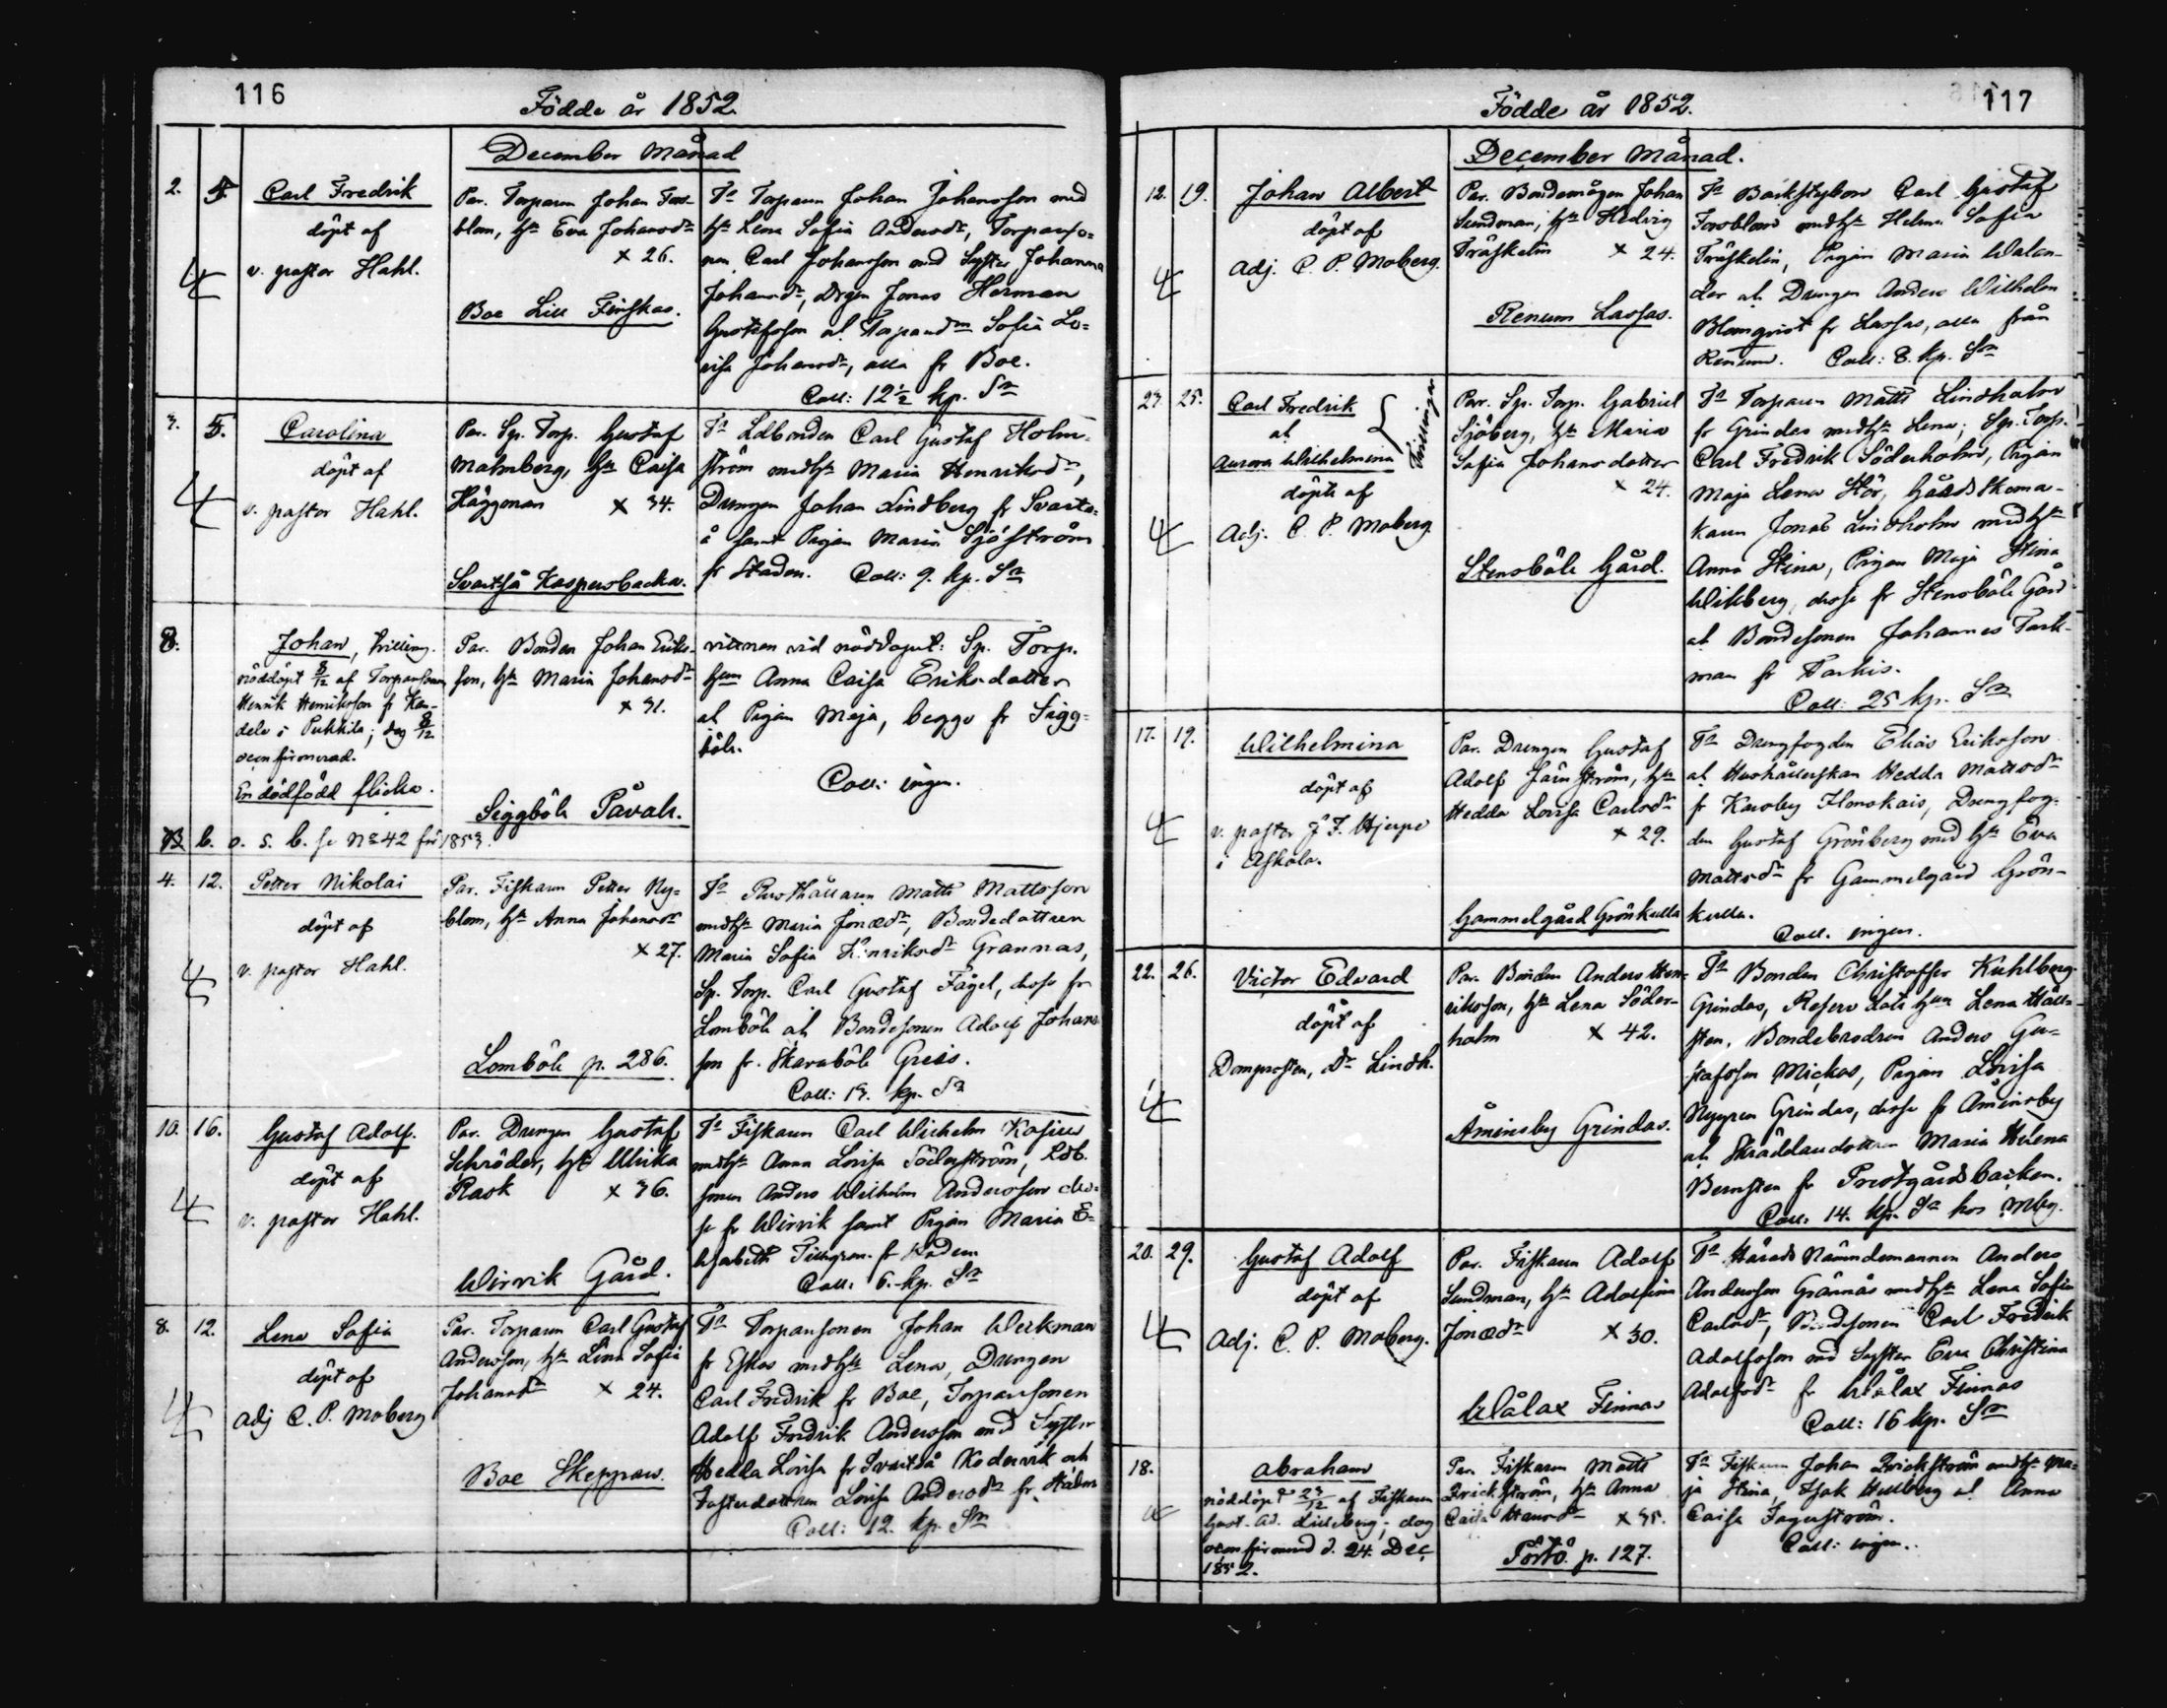 116
Födde år 1852.
December Månad
2. 4. Carl Fredrik
döpt af
v. pastor Hahl.
Par. Torparen Johan Fors-
blom, hu Eva Johansdr
x 26.
Boe Lill Finskas.
Torparen Johan Johansson med
hu Lena Sofia Andersdr, Torpareso-
nen Carl Johansson med Syster Johanna
Johansdr, drgen Jonas Herman
Gustafsson al Torparedrn Sofia Lo-
visa Johansdr, alla fr Boe.
Coll: 12½ kp. Sr
3. 5. Carolina
döpt af
v. pastor Hahl.
Par. Sp. Torp. Gustaf
Malmberg, hu Caisa
Häggman x 34.
Svartså Kaspersbacka.
Ldbonden Carl Gustaf Holm-
ström med hu Maria Henriksdr,
Drengen Johan Lindberg fr Svarts-
å samt Pigan Maria Sjöström
fr Staden. Coll: 9. kp. Sr
8. Johan, tvilling.
nöddöpt 8/12 af Torparesonen
Henrik Henriksson fr Kan-
dela i Pukkila; dog 8/12
oconfirmerad.
En dödfödd flicka.
Par. Bonden Johan Eriks-
son, hu Maria Johansdr
x 31.
Siggböle Påvals.
vittnen vid nöddopet: Sp. Torp.
hun Anna Caisa Eriksdotter
al Pigan Maja, begge fr Sigg-
böle.
Coll: ingen.
b. o. s. b. se No 42 för 1853.
4. 12. Petter Nikolai
döpt af
v. pastor Hahl.
Par. Fiskaren Petter Ny-
blom, hu Anna Johansdr
x 27.
Lomböle p. 286.
Rusthållaren Matts Mattsson
med hu Maria Jonædr, Bondedottren
Maria Sofia Henriksdr Grannas,
Sp. Torp. Carl Gustaf Fågel, desse fr
Lomböle al Bondesonen Adolf Johans-
son fr. Skavaböle Greis.
Coll: 13. kp. Sr
10. 16. Gustaf Adolf.
döpt af
v. pastor Hahl.
Par. Drengen Gustaf
Schröder, hu Ulrika
Rask x 36.
Wirvik Gård.
Fiskaren Carl Wilhelm
med hu Anna Lovisa Söderström, Ldb.
sonen Anders Wilhelm Andersson des-
se fr Wirvik samt Pigan Maria E-
lisabeth fr
Coll: 6. kp. Sr
8. 12. Lena Sofia
döpt af
adj C. P. Moberg
Par. Torparen Carl Gustaf
Andersson, hu Lena Sofia
Johansdr x 24.
Boe Skeppars.
Torparesonen Johan Werkman
fr Eskas med hu Lena, Drengen
Carl Fredrik fr Boe, Torparesonen
Adolf Fredrik Andersson med Syster
Hedda Lovisa fr Svartså Kodervik och
Lovisa Andersdr fr.
Coll: 12. kp. Sr
117
Födde år 1852.
December Månad.
12. 19. Johan Albert
döpt af
Adj. C. P. Moberg.
Par. Bondemågen Johan
Sundman, hu Hedvig
Träskelin x 24.
Renum Lassas.
Backstybon Carl Gustaf
Forsblom med hu Helena Sofia
Träskelin, Pigan Maria Walen-
der al Drengen Anders Wilhelm
Blomqvist fr Lassas, alla från
Renum. Coll: 8. kp. Sr
23. 25. Carl Fredrik
al
Aurora Wilhelmina
Tvillingar
döpte af
Adj. C. P. Moberg.
Parr. Sp. Torp. Gabriel
Sjöberg, hu Maria
Sofia Johansdotter
x 24.
Stensböle Gård.
Torparen Matts Lindholm
fr Grindas med hu Lena; Sp. Torp.
Carl Fredrik Söderholm, Pigan
Maja Lena Stör, Gårdsskoma-
karen Jonas Lindholm med hu
Anna Stina, Pigan Maja Stina
Wikberg, desse fr Stensböle Gård
al Bondesonen Johannes Tark-
man fr Tarkis.
Coll: 25 kp. Sr
17. 19. Wilhelmina
döpt af
v. pastor J. F. Hjerpe
i Askola.
Par. Drengen Gustaf
Adolf Järnström, hu
Hedda Lovisa Carlsdr
x 29.
Gammelgård Grönkulla
Drengfogden Elias Eriksson
al Hushållerskan Hedda Mattsdr
fr Karsby Ilmokais, Drengfog-
den Gustaf Grönberg med hu Eva
Mattsdr fr Gammelgård Grön-
kulla.
Coll. ingen.
22. 26. Victor Edvard
döpt af
Domprosten, Dr Lindh.
Par. Bonden Anders Hen-
riksson, hu Lena Söder-
holm x 42.
Åminsby Grindas.
Bonden Christoffer Kuhlberg
Grindas, Reserv dats hun Lena Häll-
sten, Bondebrodren Anders Gu-
stafsson Mickas, Pigan Lovisa
Nygren Grindas, desse fr Åminsby
al Skräddaredottren Maria Helena
Bernsten fr Prostgårdsbacken.
Coll: 14. kp. Sr hos Mbg.
20. 29. Gustaf Adolf
döpt af
Adj. C. P. Moberg.
Par. Fiskaren Adolf
Sundman, hu Adolfina
Jonædr x 30.
Wålax Finnas
Härads Nämndemannen Anders
Andersson Grännäs med hu Lena Sofia
Carlsdr, Bondsonen Carl Fredrik
Adolfsson med Syster Eva Christina
Adolfsdr fr Wålax Finnas
Coll: 16 kp. Sr
18. Abraham
nöddöpt 23/12 af Fiskaren
Gust. Ad. Lilleberg; dog
oconfirmerad d. 24. Dec.
1852.
Par. Fiskaren Matts
Brickström, hu Anna
Caisa x 35.
Pörtö p. 127.
Fiskaren Johan Brickström med hu Ma-
ja Stina, Isak Hellberg al Anna
Caisa Fagerström.
Coll: ingen.